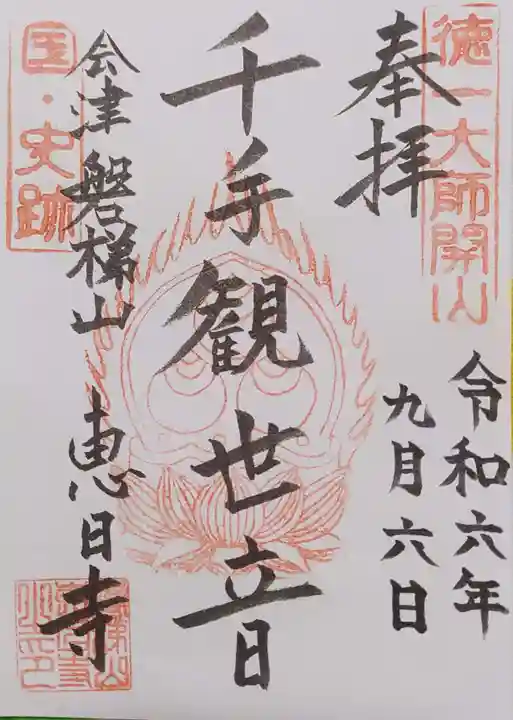 徳一大師開山
奉拝
令和六年
九月六日
千手観世音
国・史跡
会津磐梯山 恵日寺